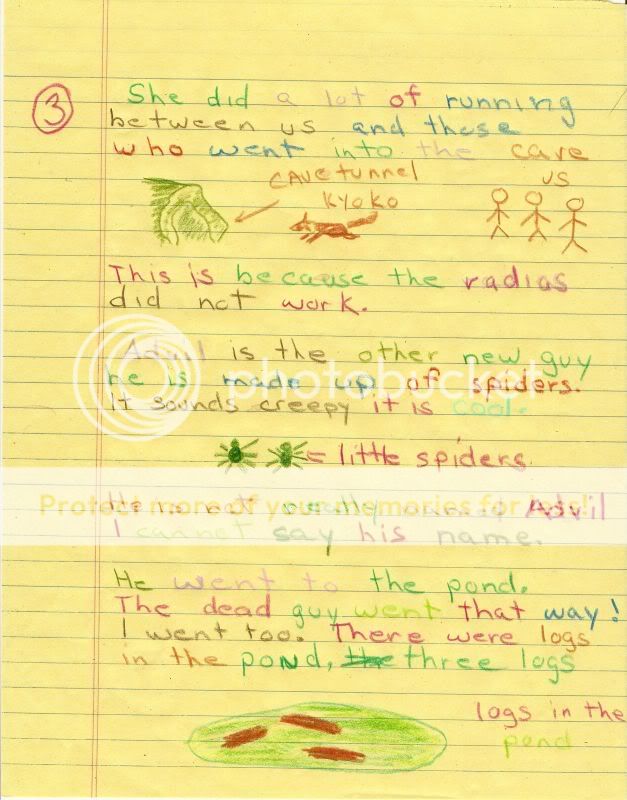 3
She did a lot of running
between us and those
who went into the cave
cave tunnel
us
Kyoko
This is because the radias
did not work.
Advil is the other new guy
he is made up of spiders.
It sounds creepy it is cool.
photobucket
= little spiders.
He is not really Advil
Protect more of your memories for less!
I cannot say his name.
He went to the pond.
The dead guy went that way!
I went too. There were logs
in the pond, the three logs
logs in the
pond